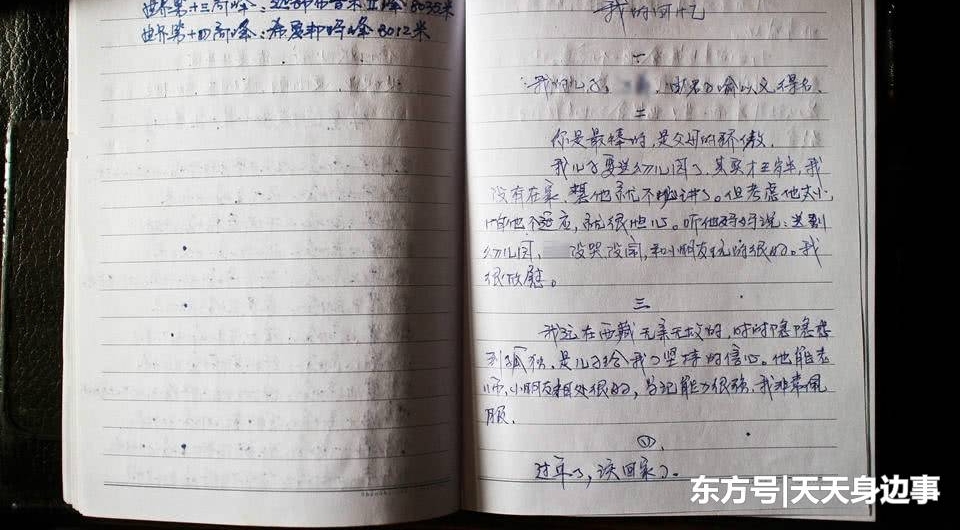 世界第十三高峰：迦舒布鲁木II峰 8035米
世界第十四高峰：希夏邦峰 8012米
我的回忆
一
我的儿子，
二
你是最棒的，是父母的骄傲。
我儿子要送幼儿园了，其实才三岁半，我
没有在家，想他就不
了。但考虑他太小
怕他不适应，就很担心。听他妈妈说：送到
幼儿园，没哭没闹，和小朋友玩的很好。我
很欣慰。
三
我远在西藏无亲无故的，时时隐隐感
到孤独，是儿子给我了坚持的信心。他能老
师、小朋友相处很好，学记能力很强，我非常佩
服。
四
过年了，该回家了。
东方号|天天身边事